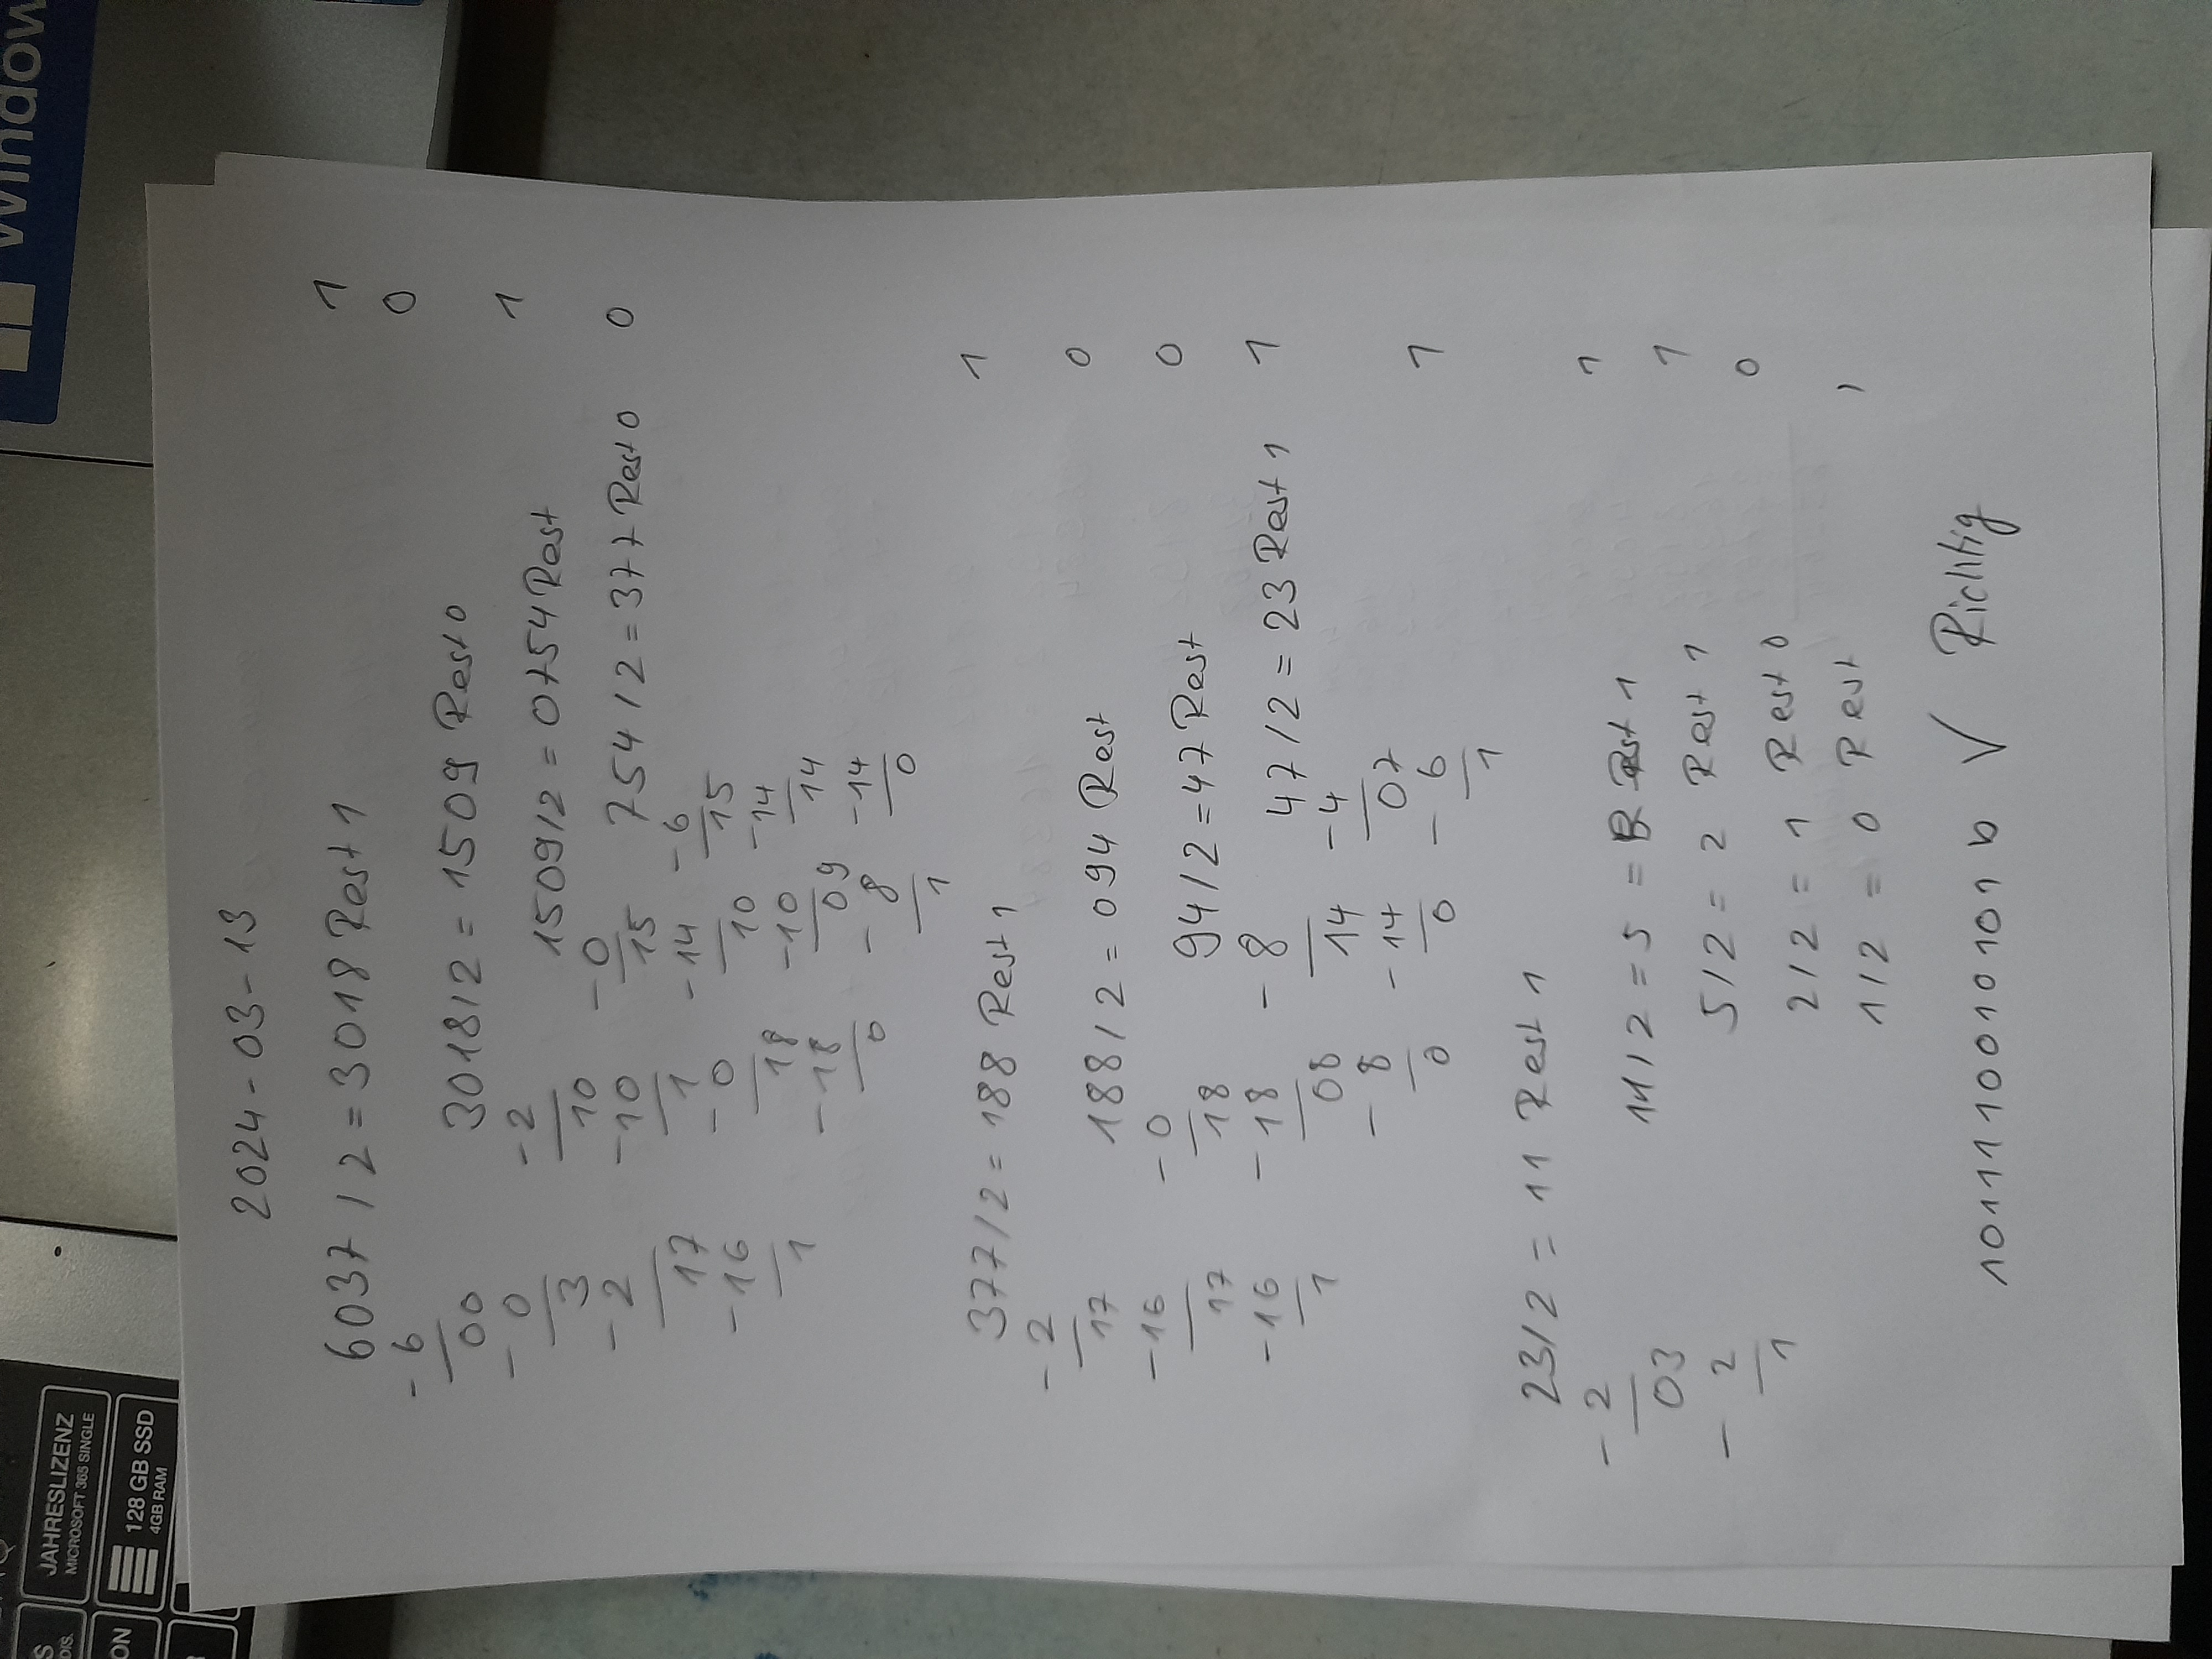 Windows
JAHRESLIZENZ
MICROSOFT 365 SINGLE
128 GB SSD
4GB RAM
DIS.
ON
2024-03-13
6037/2=3018 Rest 1 1
-6 0
00
-0
3
-2
17
-16
1
3018/2=1509 Rest 0
-2
10
-10
1
-0
18
-18
0
1509/2=0754 Rest 1
-0
15
-14
10
-10
09
-8
1
754/2=377 Rest 0 0
-6
15
-14
14
-14
0
377/2=188 Rest 1 1
-2
17
-16
17
-16
1
188/2=094 Rest 0
-0
18
-18
08
-8
0
94/2=47 Rest 0
-8
14
-14
0
47/2=23 Rest 1 1
-4
07
-6
1
23/2=11 Rest 1 1
-2
03
-2
1
11/2=5= Rest 1 1
5/2=2 Rest 1 1
2/2=1 Rest 0 0
1/2=0 Rest 1
1011110010101 b √ Richtig